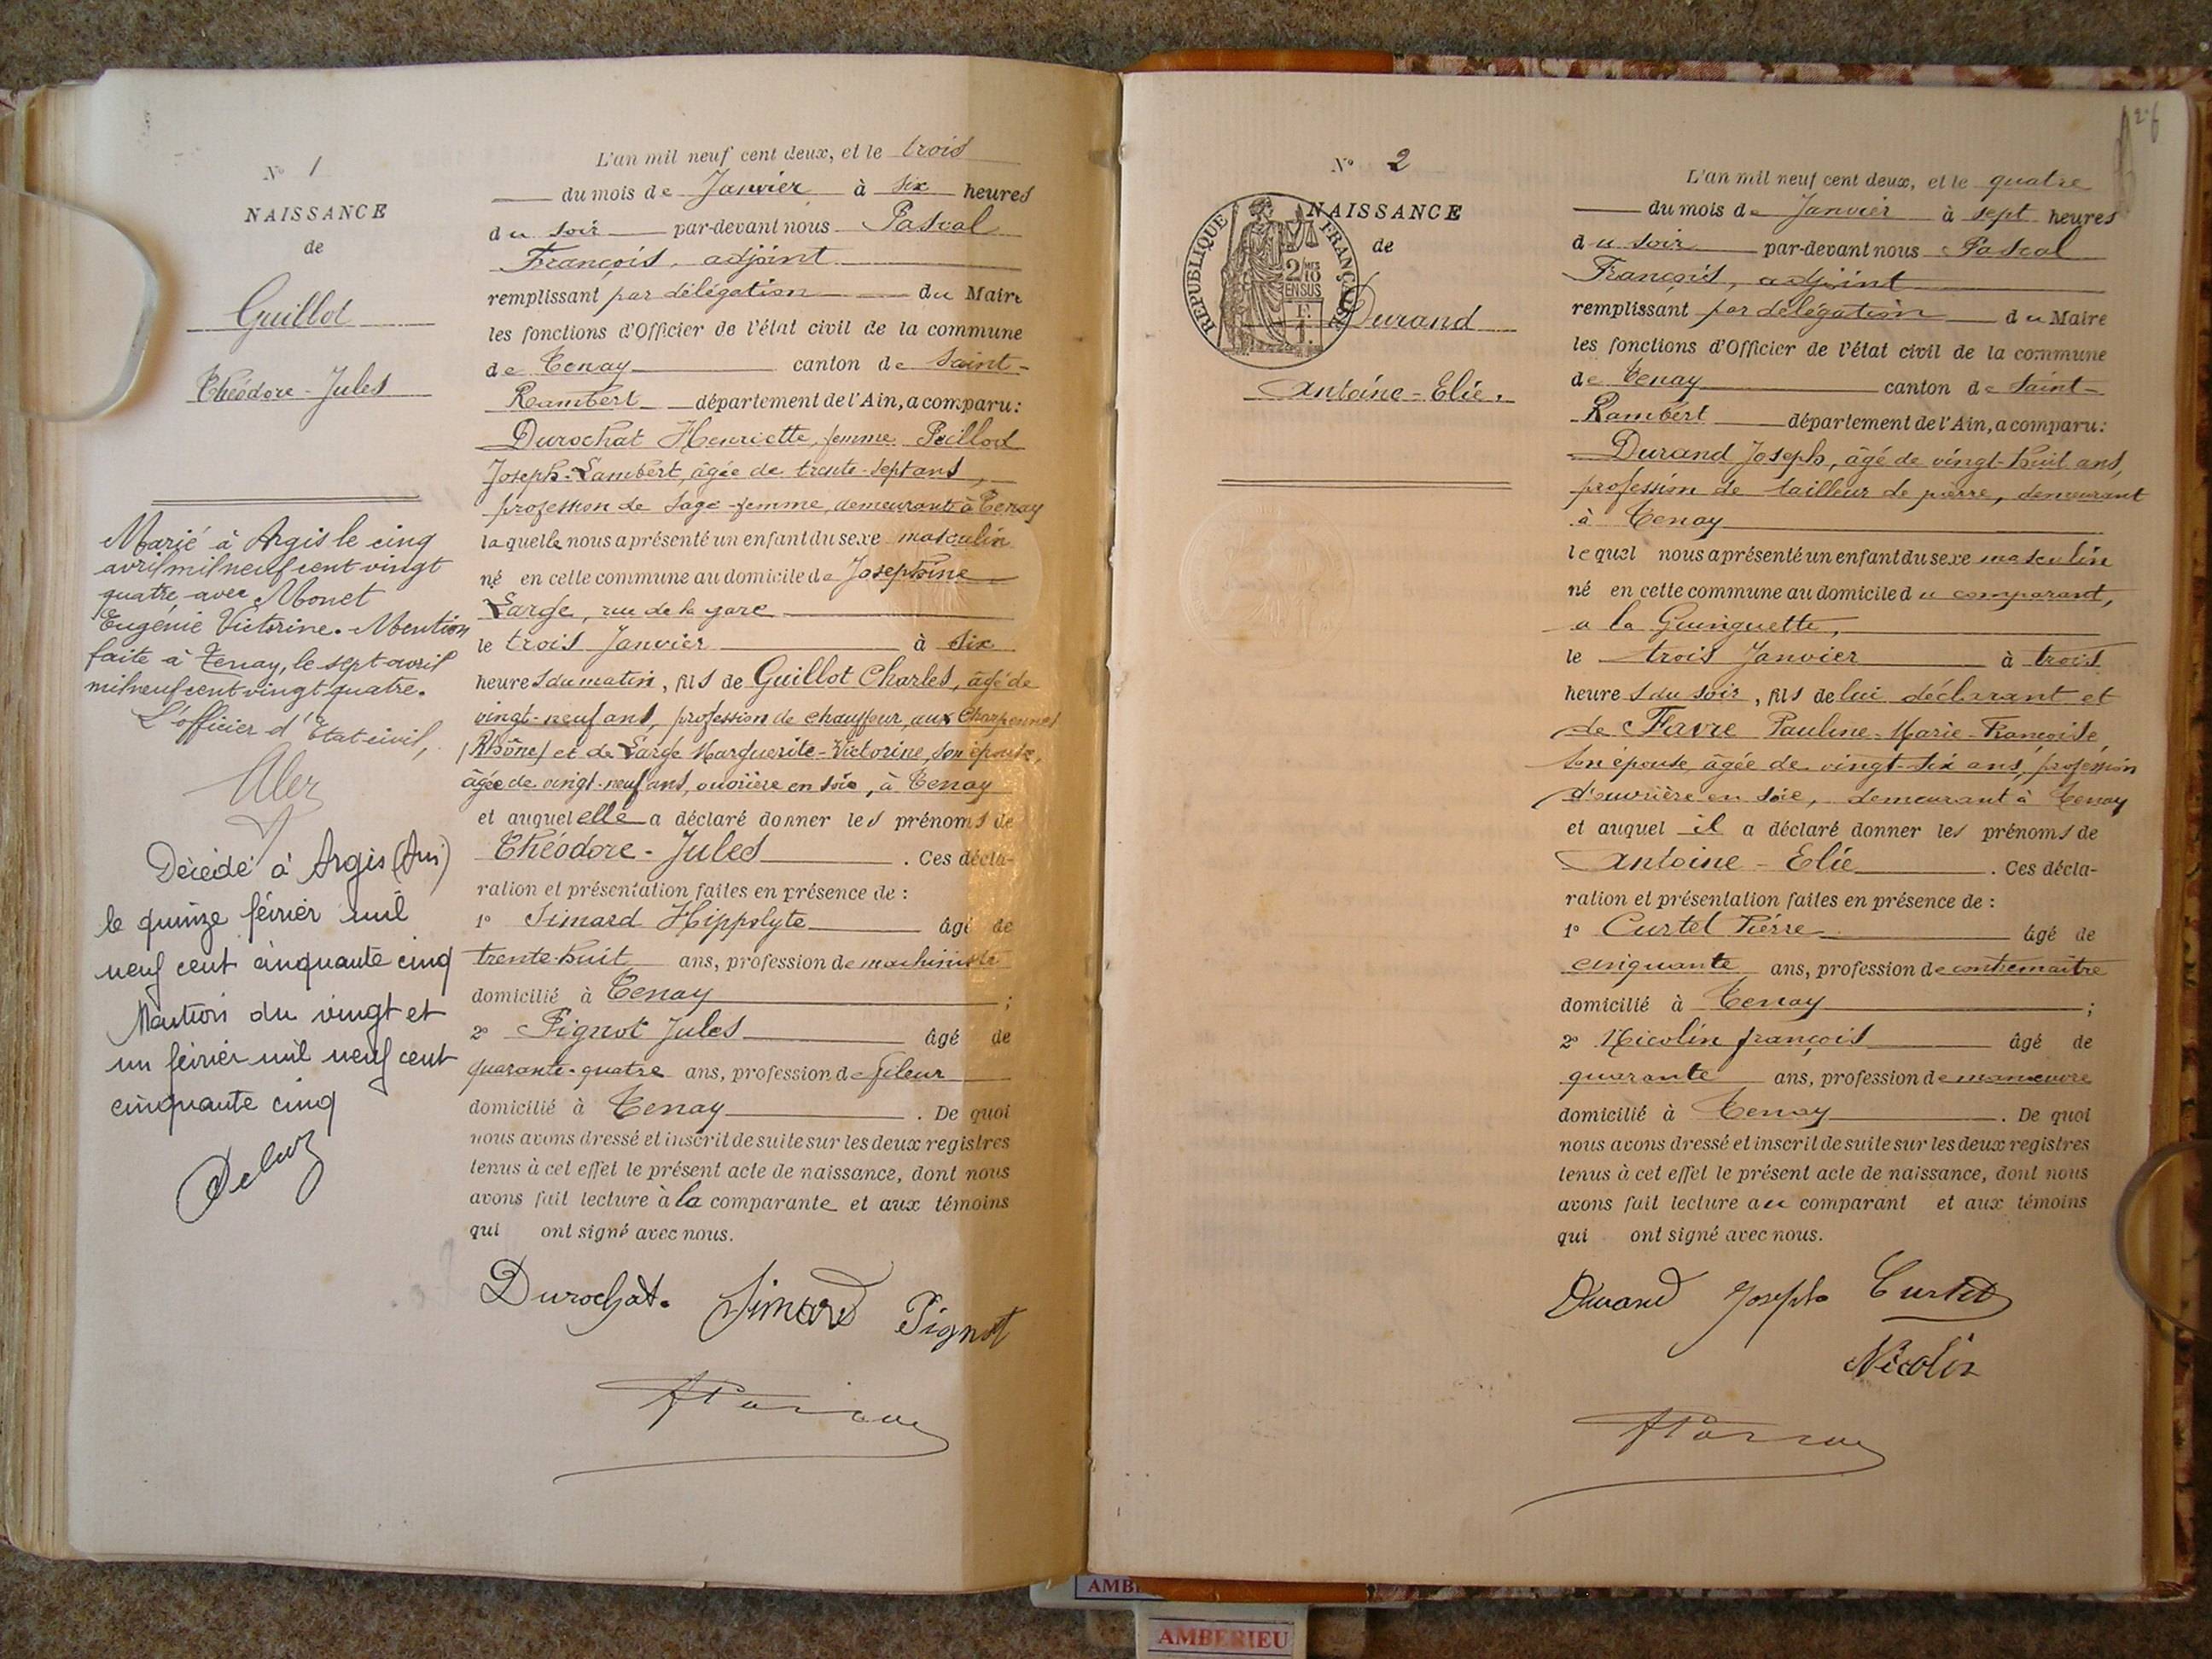 N° 1
NAISSANCE
de
Guillot
Théodore - Jules
Marié à Argis le cinq
avril mil neuf cent vingt
quatre avec Monet
Eugénie Victorine. Mention
faite à Tenay, le sept avril
mil neuf cent vingt quatre.
L'officier d'Etat-civil,
Décédé à Argis (Ain)
le quinze février mil
neuf cent cinquante cinq
Mention du vingt et
un février mil neuf cent
cinquante cinq
L'an mil neuf cent deux, et le trois
du mois de Janvier à six heures
du soir par-devant nous Pascal
François, adjoint
remplissant par délégation du Maire
les fonctions d'Officier de l'état civil de la commune
de Tenay canton de Saint-
Rambert département de l'Ain, a comparu:
Durochat Henriette, femme
Joseph-Lambert, âgée de trente-sept ans,
profession de sage-femme, demeurante à Tenay
laquelle nous a présenté un enfant du sexe masculin
né en cette commune au domicile de Joséphine
Large, rue de la gare
le trois Janvier à six
heures du matin, fils de Guillot Charles, âgé de
vingt-neuf ans, profession de chauffeur, aux Charpennes
(Rhône) et de Large Marguerite-Victorine, son épouse,
âgée de vingt-neuf ans, ouvrière en soie, à Tenay
et auquel elle a déclaré donner les prénoms de
Théodore - Jules . Ces décla-
ration et présentation faites en présence de :
1° Simard Hippolyte âgé de
trente-huit ans, profession de machiniste
domicilié à Tenay ;
2° Pignot Jules âgé de
quarante-quatre ans, profession de fileur
domicilié à Tenay . De quoi
nous avons dressé et inscrit de suite sur les deux registres
tenus à cet effet le présent acte de naissance, dont nous
avons fait lecture à la comparante et aux témoins
qui ont signé avec nous.
Durochat. Simard Pignot
N° 2
NAISSANCE
de
REPUBLIQUE FRANÇAISE
2/10
EN SUS
Durand
Antoine - Elie.
L'an mil neuf cent deux, et le quatre
du mois de Janvier à sept heures
du soir par-devant nous Pascal
François, adjoint
remplissant par délégation du Maire
les fonctions d'Officier de l'état civil de la commune
de Tenay canton de Saint-
Rambert département de l'Ain, a comparu:
Durand Joseph, âgé de vingt-huit ans,
profession de tailleur de pierre, demeurant
à Tenay
lequel nous a présenté un enfant du sexe masculin
né en cette commune au domicile du comparant,
a la Guinguette,
le trois Janvier à trois
heures du soir, fils de lui déclarant et
de Favre Pauline-Marie-Françoise,
son épouse, âgée de vingt-six ans, profession
d'ouvrière en soie, demeurant à Tenay
et auquel il a déclaré donner les prénoms de
Antoine - Elie . Ces décla-
ration et présentation faites en présence de :
1° Curtet Pierre âgé de
cinquante ans, profession de contremaître
domicilié à Tenay ;
2° Nicolin françois âgé de
quarante ans, profession de manœuvre
domicilié à Tenay . De quoi
nous avons dressé et inscrit de suite sur les deux registres
tenus à cet effet le présent acte de naissance, dont nous
avons fait lecture au comparant et aux témoins
qui ont signé avec nous.
Durand Joseph Curtet
Nicolin
AMBERIEU